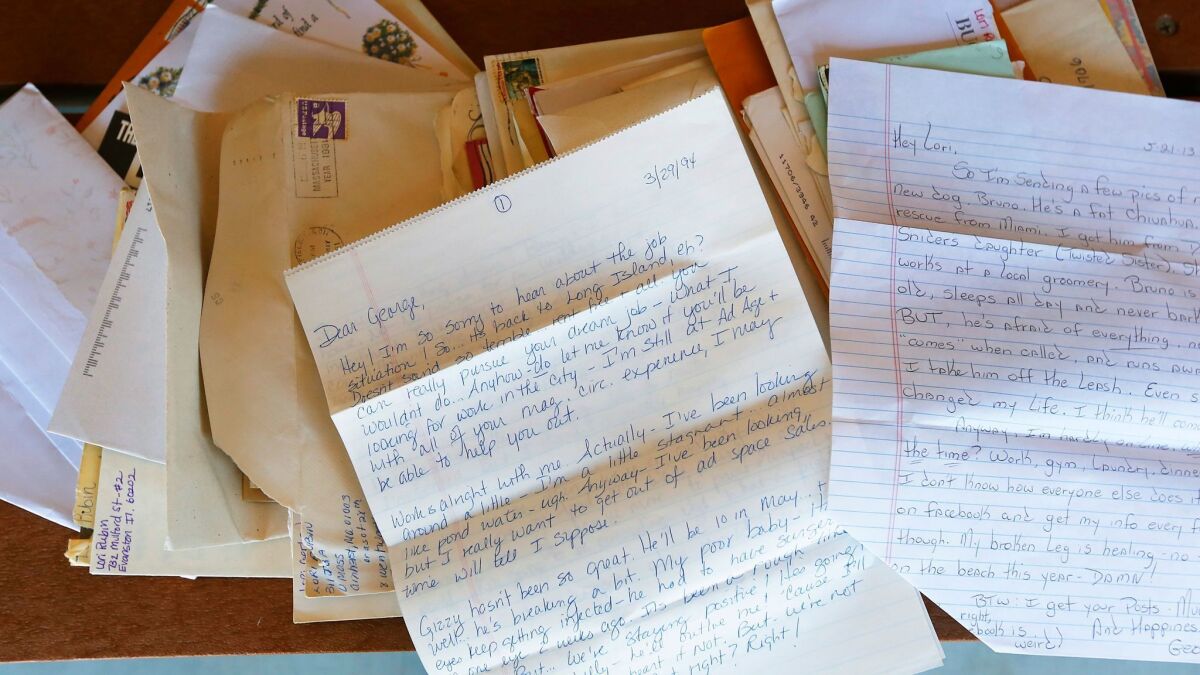 3/29/94
1
Dear George,
Hey! I'm so sorry to hear about the job
situation! So... it's back to Long Island, eh?
Doesn't sound so terrible - rent free + all you
can really pursue your dream job - what I
wouldn't do... Anyhow - do let me know if you'll be
looking for work in the city - I'm still at Ad Age +
with all of your mag. circ. experience, I may
be able to help you out.
Work is alright with me. Actually - I've been looking
around a little - I'm a little stagnant... almost
like pond water - ugh. Anyway - I've been looking,
but I really want to get out of ad space sales.
Time will tell I suppose.
Gizzy hasn't been so great. He'll be 10 in May... +
well... he's breaking a bit. My poor baby - his
eyes keep getting infected - he had to have surgery
in one eye 2 weeks ago. It's been a rough
But... we're staying positive! He's going
he'll outlive me! 'Cause I'll
heart if not. But - we're not
right? Right!
5-21-13
Hey Lori,
So I'm sending a few pics of
new dog, Bruno. He's a fat Chihuahua
rescue from Miami. I got him from
Sniders daughter (Twisted Sister). S
works at a local groomery. Bruno is
old, sleeps all day and never bark
BUT, he's afraid of everything,
"comes" when called, and runs awa
I take him off the leash. Even s
changed my life. I think he'll com
Anyway, I'm hardly online.
the time? Work, gym, laundry, dinne
I don't know how everyone else does i
on facebook and get my info every
though. My broken leg is healing - no
on the beach this year - DAMN!
BTW: I get your posts.
right,
And Happiness
book is
weird)
Geo
MASSACHUSET
YEAR 1981
Lori Rubin
732 Mulford St - #2
Evanston Il. 60202
UMASS
11706/3946